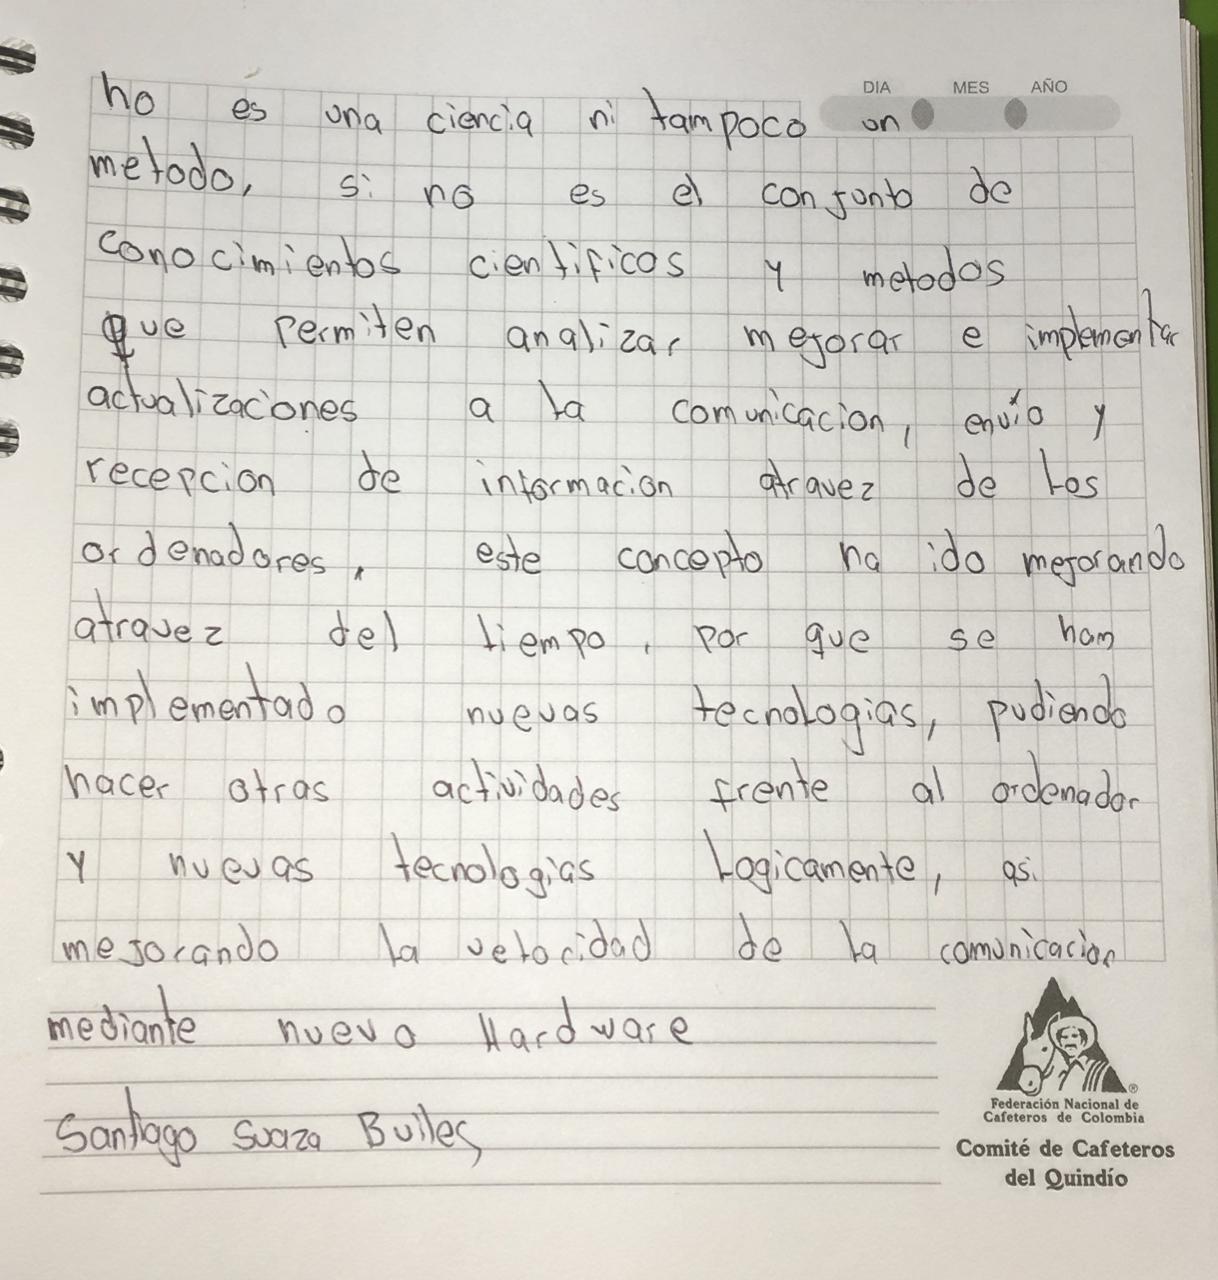 DIA MES AÑO
no es una ciencia ni tampoco un
metodo, si no es el conjunto de
conocimientos cientificos y metodos
que permiten analizar mejorar e implementar
actualizaciones a la comunicacion, envío y
recepcion de informacion atravez de los
ordenadores, este concepto ha ido mejorando
atravez del tiempo, por que se han
implementado nuevas tecnologias, pudiendo
hacer otras actividades frente al ordenador
y nuevas tecnologias logicamente, asi
mejorando la velocidad de la comunicacion
mediante nuevo Hardware
Santiago Suaza Builes
®
Federación Nacional de
Cafeteros de Colombia
Comité de Cafeteros
del Quindío